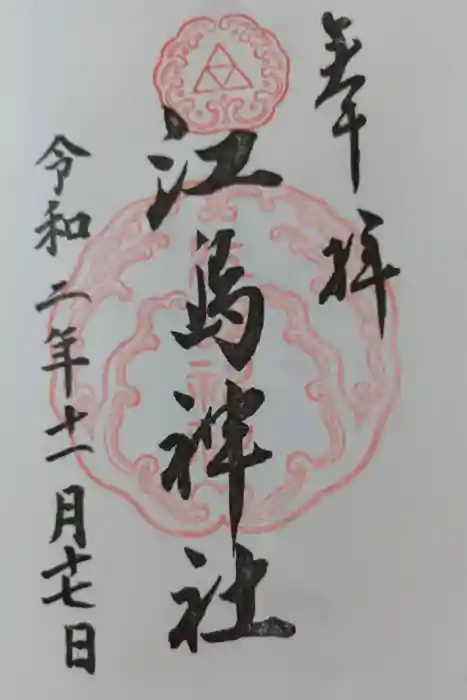 奉拝
江島神社
令和二年十一月十七日